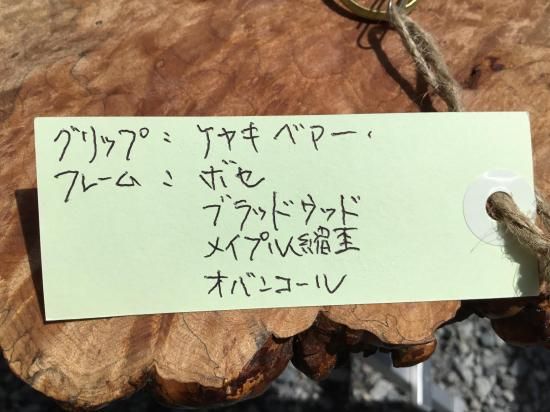 グリップ： ケヤキ ベアー、
フレーム： ボセ
ブラッドウッド
メイプル縮杢
オバンコール